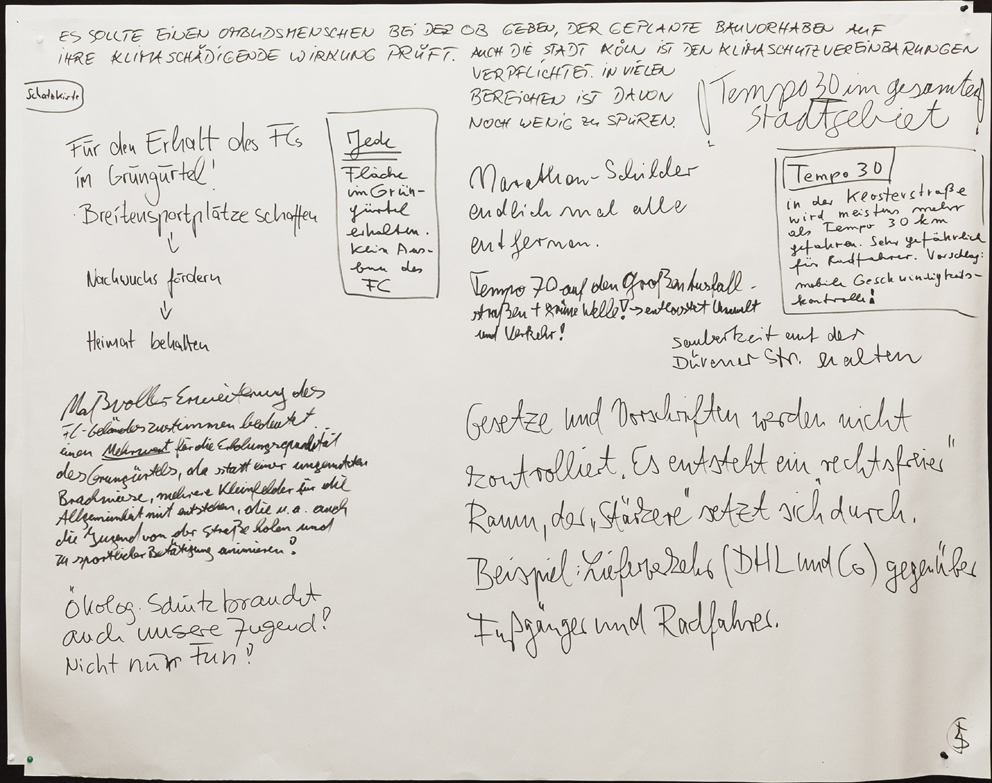 ES SOLLTE EINEN OMBUDSMENSCHEN BEI DER OB GEBEN, DER GEPLANTE BAUVORHABEN AUF
IHRE KLIMASCHÄDIGENDE WIRKUNG PRÜFT. AUCH DIE STADT KÖLN IST DEN KLIMASCHUTZVEREINBARUNGEN
VERPFLICHTET. IN VIELEN
BEREICHEN IST DAVON
NOCH WENIG ZU SPÜREN.
Schatzkiste
! Tempo 30 im gesamten
Stadtgebiet !
Für den Erhalt des FCs
im Grüngürtel!
Breitensportplätze schaffen
↓
Nachwuchs fördern
↓
Heimat behalten
Jede
Fläche
im Grün-
gürtel
erhalten.
Kein Aus-
bau des
FC
Marathon-Schilder
endlich mal alle
entfernen.
Tempo 30
in der Klosterstraße
wird meistens mehr
als Tempo 30 km
gefahren. Sehr gefährlich
für Radfahrer. Vorschlag:
mobile Geschwindigkeits-
kontrolle!
Tempo 70 auf den großen Ausfall-
straßen + grüne Welle! → entlastet Umwelt
und Verkehr!
Sauberkeit auf der
Dürener Str. erhalten
Maßvoller Erweiterung des
FC-Geländes zustimmen bedeutet
einen Mehrwert für die Erholungsqualität
des Grüngürtels, da statt einer ungenutzten
Brachwiese, mehrere Kleinfelder für die
Allgemeinheit mit entstehen, die u.a. auch
die Jugend von der Straße holen und
zu sportlicher Betätigung animieren!
Gesetze und Vorschriften werden nicht
kontrolliert. Es entsteht ein "rechtsfreier"
Raum, der „Stärkere" setzt sich durch.
Beispiel: Lieferverkehr (DHL und Co) gegenüber
Fußgänger und Radfahrer.
Ökolog. Schutz braucht
auch unsere Jugend!
Nicht nur Fun!
5